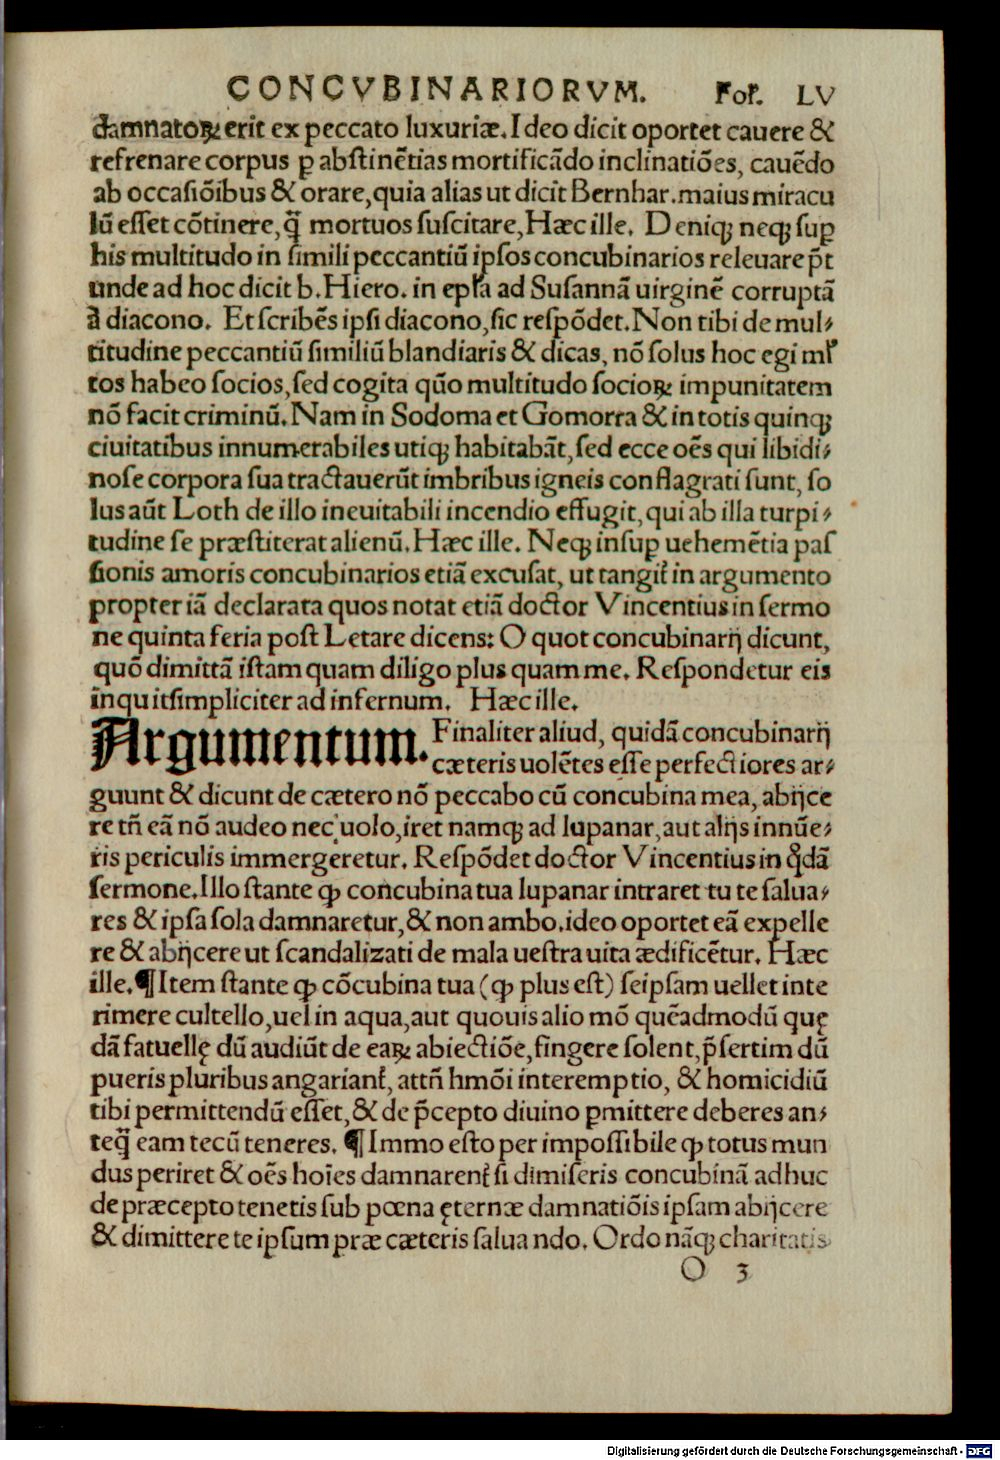 CONCVBINARIORVM. Fol. LV
damnatoꝝ erit ex peccato luxuriæ. Ideo dicit oportet cauere &
refrenare corpus ꝑ abstinẽtias mortificãdo inclinatiões, cauẽdo
ab occasiõibus & orare, quia alias ut dicit Bernhar. maius miracu
lũ esset cõtinere, q̃ mortuos suscitare, Hæc ille. Deniqꝫ neqꝫ suꝑ
his multitudo in simili peccantiũ ipsos concubinarios releuare p̃t
unde ad hoc dicit b. Hiero. in epła ad Susannã uirginẽ corruptã
à diacono. Et scribẽs ipsi diacono, sic respõdet. Non tibi de mul⸗
titudine peccantiũ similiũ blandiaris & dicas, nõ solus hoc egi mł
tos habeo socios, sed cogita qũo multitudo socioꝝ impunitatem
nõ facit criminũ. Nam in Sodoma et Gomorra & in totis quinqꝫ
ciuitatibus innumerabiles utiqꝫ habitabãt, sed ecce oẽs qui libidi⸗
nose corpora sua tractauerũt imbribus igneis conflagrati sunt, so
lus aũt Loth de illo ineuitabili incendio effugit, qui ab illa turpi⸗
tudine se præstiterat alienũ. Hæc ille. Neqꝫ insuꝑ uehemẽtia pas
sionis amoris concubinarios etiã excusat, ut tangit᷑ in argumento
propter iã declarata quos notat etiã doctor Vincentius in sermo
ne quinta feria post Letare dicens: O quot concubinarij dicunt,
quõ dimittã istam quam diligo plus quam me. Respondetur eis
inquit simpliciter ad infernum. Hæc ille.
Argumentum. Finaliter aliud, quidã concubinarij
cæteris uolẽtes esse perfectiores ar⸗
guunt & dicunt de cætero nõ peccabo cũ concubina mea, abijce
re tñ eã nõ audeo nec uolo, iret namqꝫ ad lupanar, aut alijs innũe⸗
ris periculis immergeretur. Respõdet doctor Vincentius in qͦdã
sermone. Illo stante ꝙ concubina tua lupanar intraret tu te salua⸗
res & ipsa sola damnaretur, & non ambo. ideo oportet eã expelle
re & abijcere ut scandalizati de mala uestra uita ædificẽtur. Hæc
ille. ¶ Item stante ꝙ cõcubina tua (ꝙ plus est) seipsam uellet inte
rimere cultello, uel in aqua, aut quouis alio mõ quẽadmodũ quę
dã fatuellę dũ audiũt de eaꝝ abiectiõe, fingere solent, p̃sertim dũ
pueris pluribus angariant᷑, attñ hmõi interemptio, & homicidiũ
tibi permittendũ esset, & de p̃cepto diuino ꝑmittere deberes an⸗
teq̃ eam tecũ teneres. ¶ Immo esto per impossibile ꝙ totus mun
dus periret & oẽs hoĩes damnarent᷑ si dimiseris concubinã adhuc
de præcepto teneris sub pœna ęternæ damnatiõis ipsam abijcere
& dimittere te ipsum præ cæteris saluando. Ordo nãqꝫ charitatis
O 3
Digitalisierung gefördert durch die Deutsche Forschungsgemeinschaft - DFG